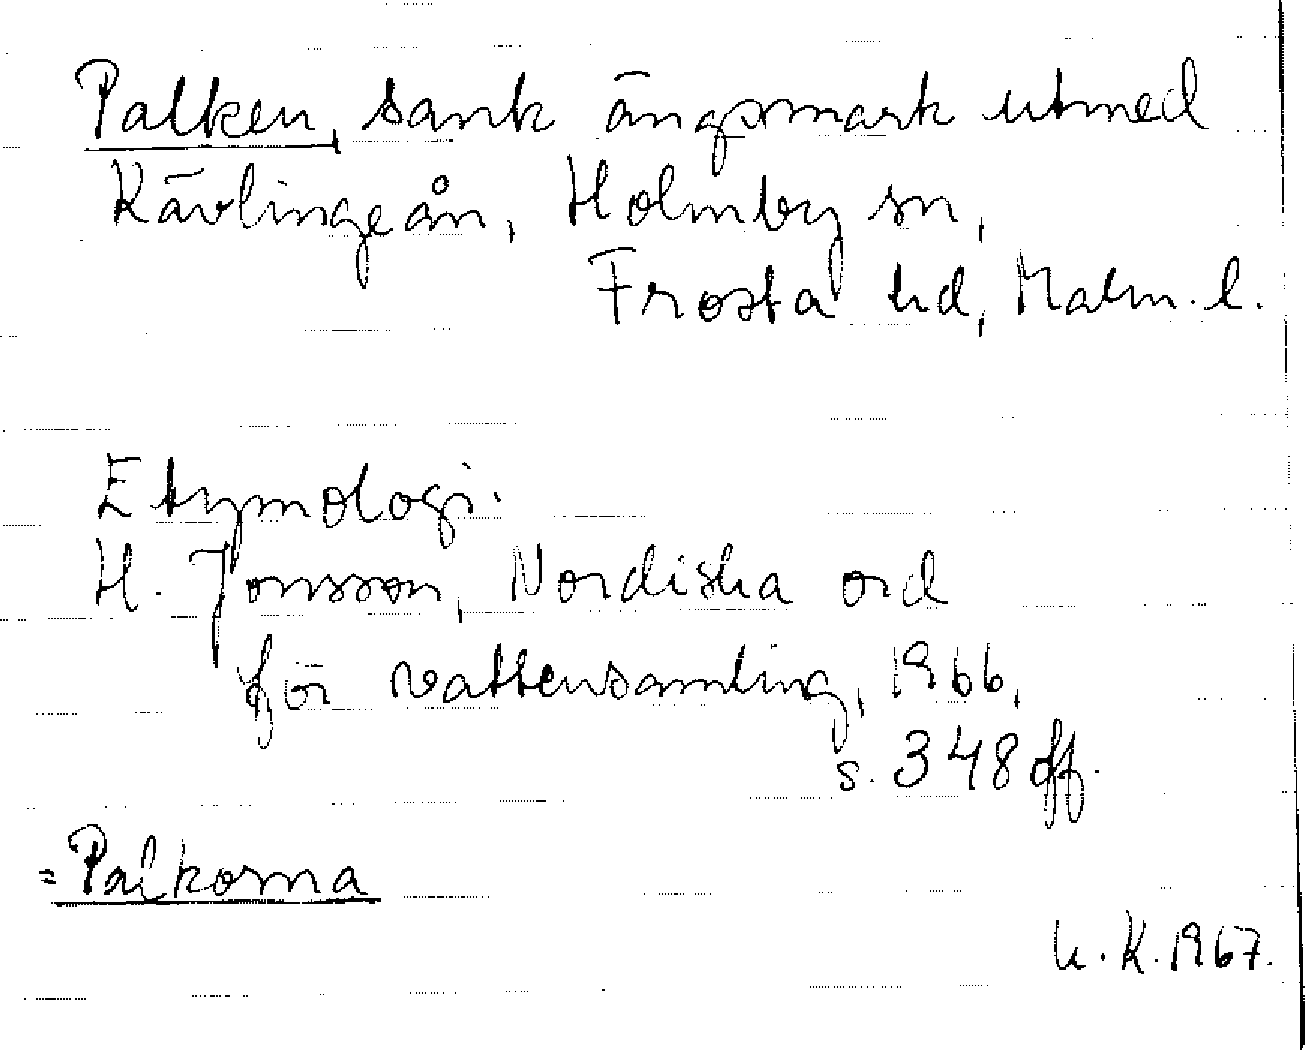 Palken, sank ängsmark utmed
Kävlingeån, Holmby sn,
Frosta hd, Malm. l.
Etymologi.
H. Jonsson, Nordiska ord
för vattensamling, 1966,
s. 348 ff.
= Palkorna
K. 1967.